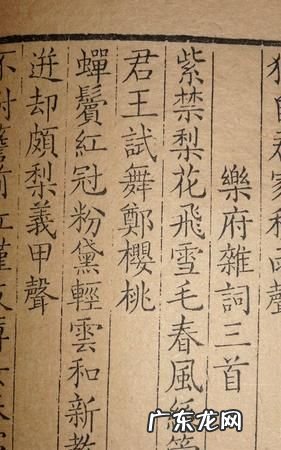 自君家
樂府雜詞三首
紫禁梨花飛雪毛春風絲管
君王試舞鄭櫻桃
蟬鬢紅冠粉黛輕雲和新教
迸却頗梨義甲聲
簷前
广东龙网